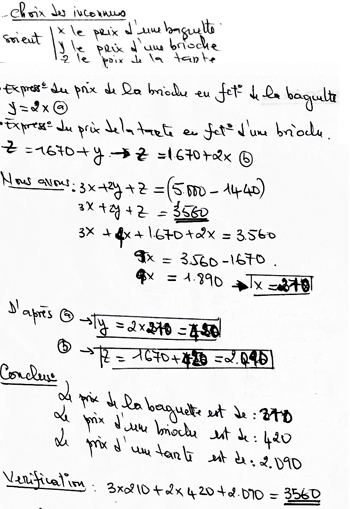 choix des inconnus
soient | x le prix d'une baguette
y le prix d'une brioche
z le prix de la tarte
• Express° du prix de la brioche en fct° de la baguette
y = 2x ⓐ
• Express° du prix de la tarte en fct° d'une brioche.
z = 1670 + y → z = 1.670 + 2x ⓑ
Nous avons : 3x + 2y + z = (5.000 - 1440)
3x + 2y + z = 3560
3x + 4x + 1.670 + 2x = 3.560
9x = 3.560 - 1670.
9x = 1.890 → x = 210
D'après ⓐ → y = 2 x 210 = 420
ⓑ → z = 1670 + 420 = 2.090
Conclus°
Le prix de la baguette est de : 210
Le prix d'une brioche est de : 420
Le prix d'une tarte est de : 2.090
Verification : 3x210 + 2x420 + 2.090 = 3560